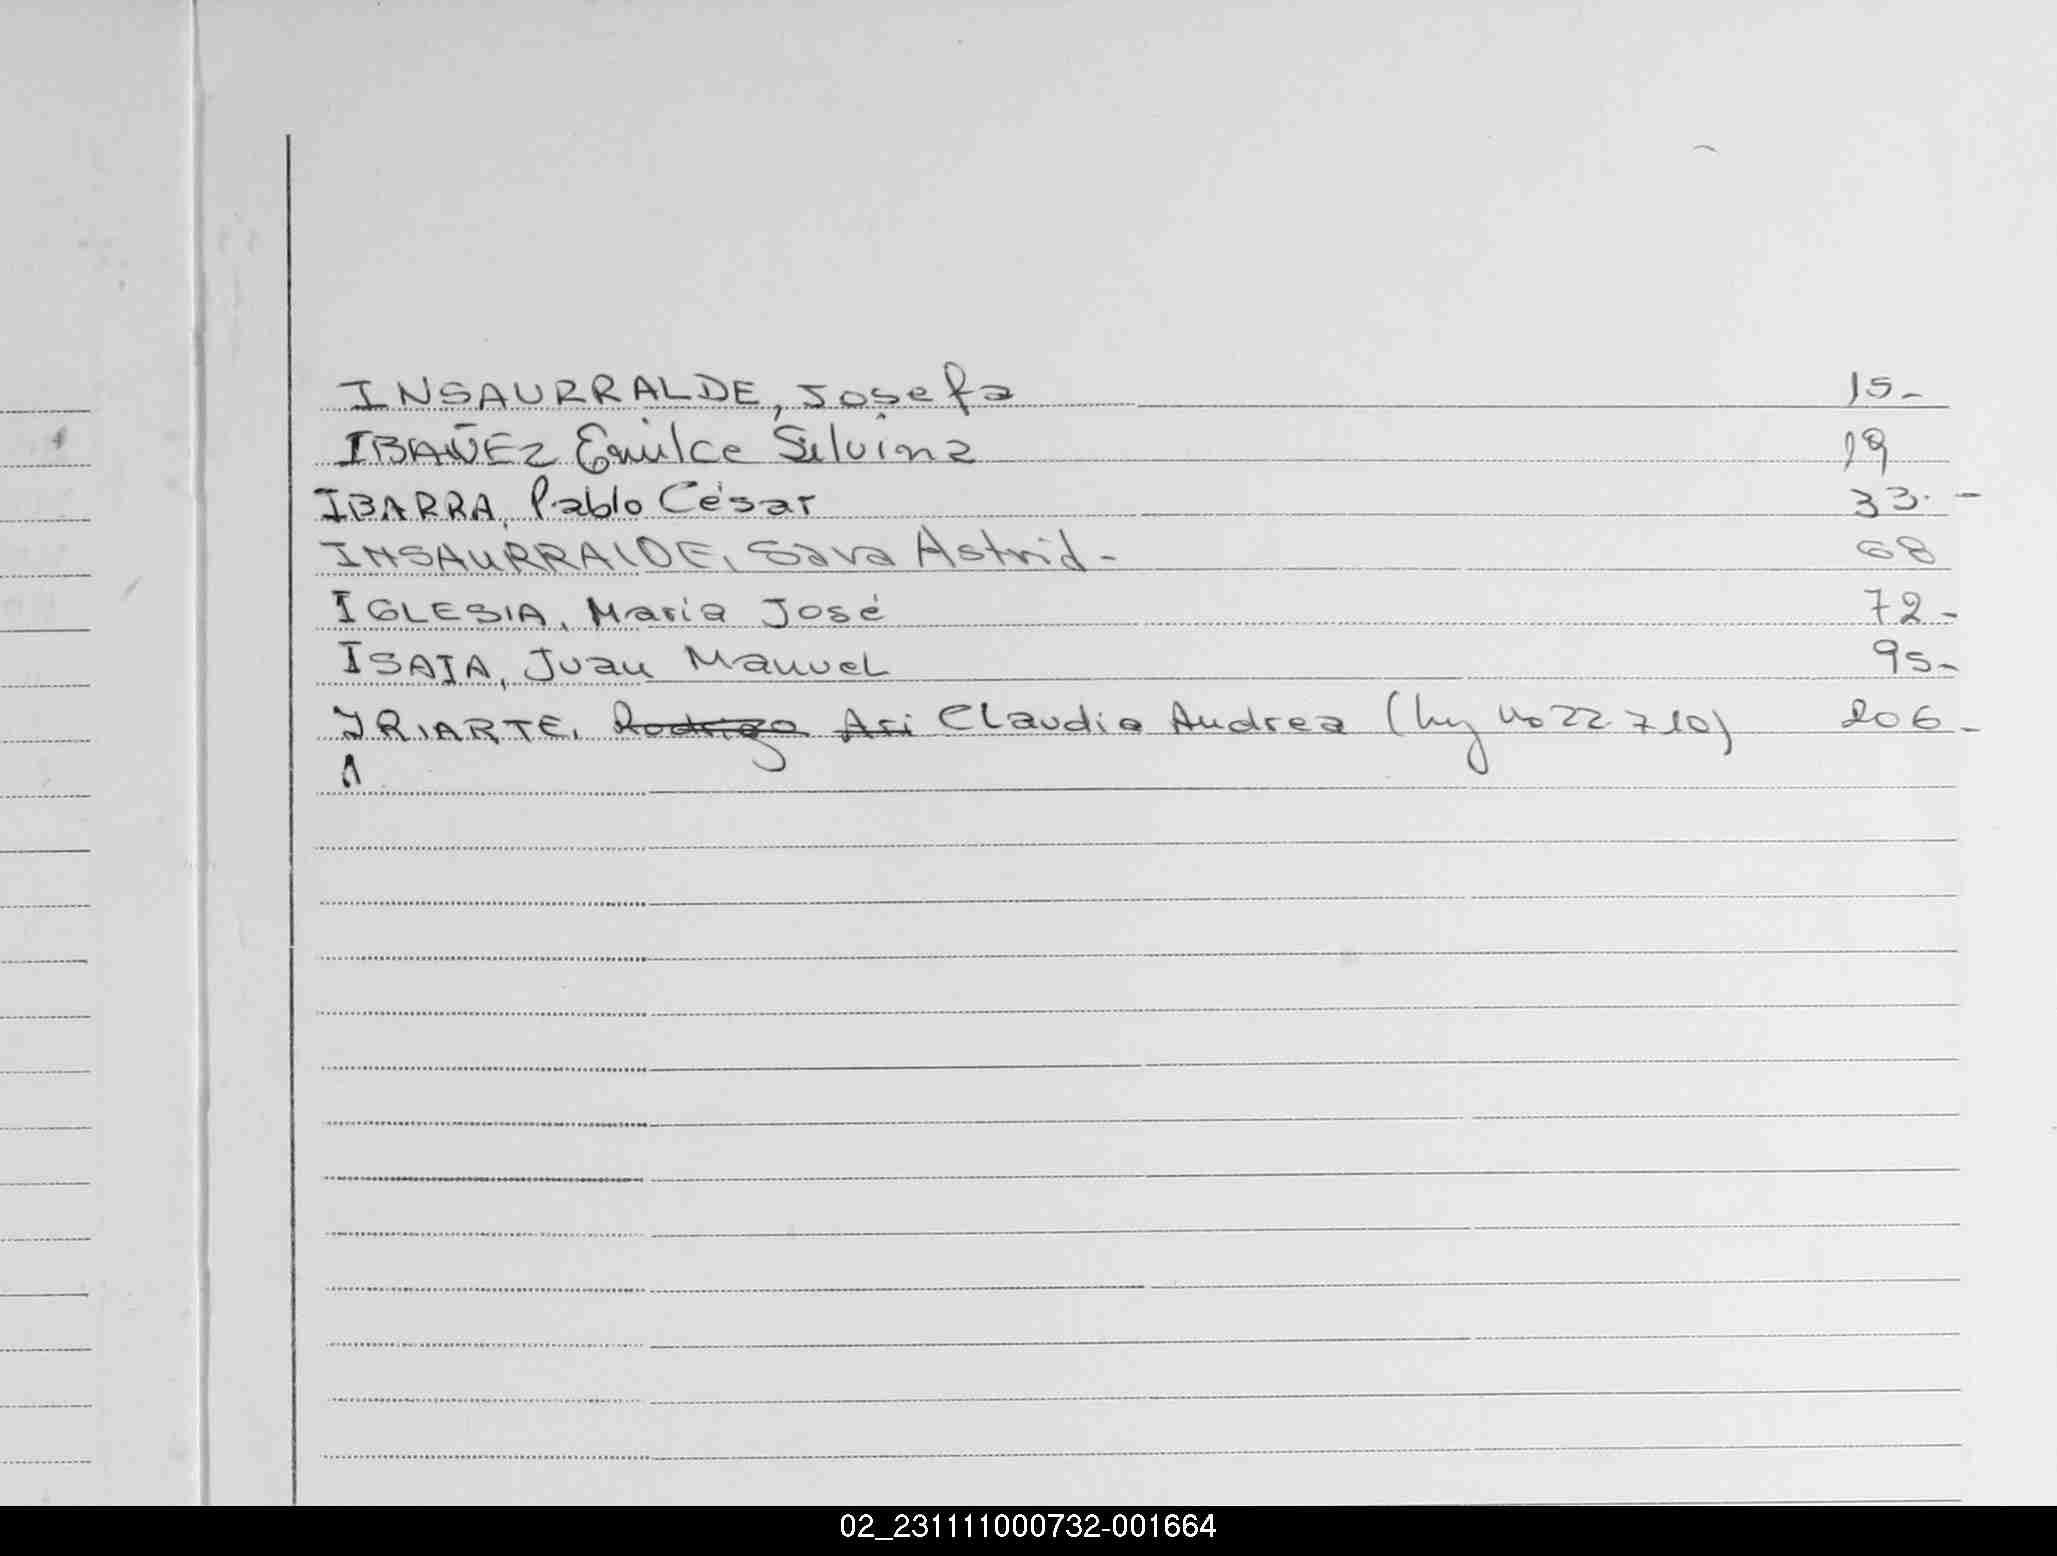 INSAURRALDE, Josefa 15-
IBAÑEZ Emilce Silvina 19
IBARRA, Pablo César 33. -
INSAURRALDE, Sara Astrid - 68
IGLESIA, Maria José 72-
ISAIA, Juan Manuel 95-
IRIARTE, Rodrigo Ari Claudia Andrea (ley 22.710) 206-
02_231111000732-001664